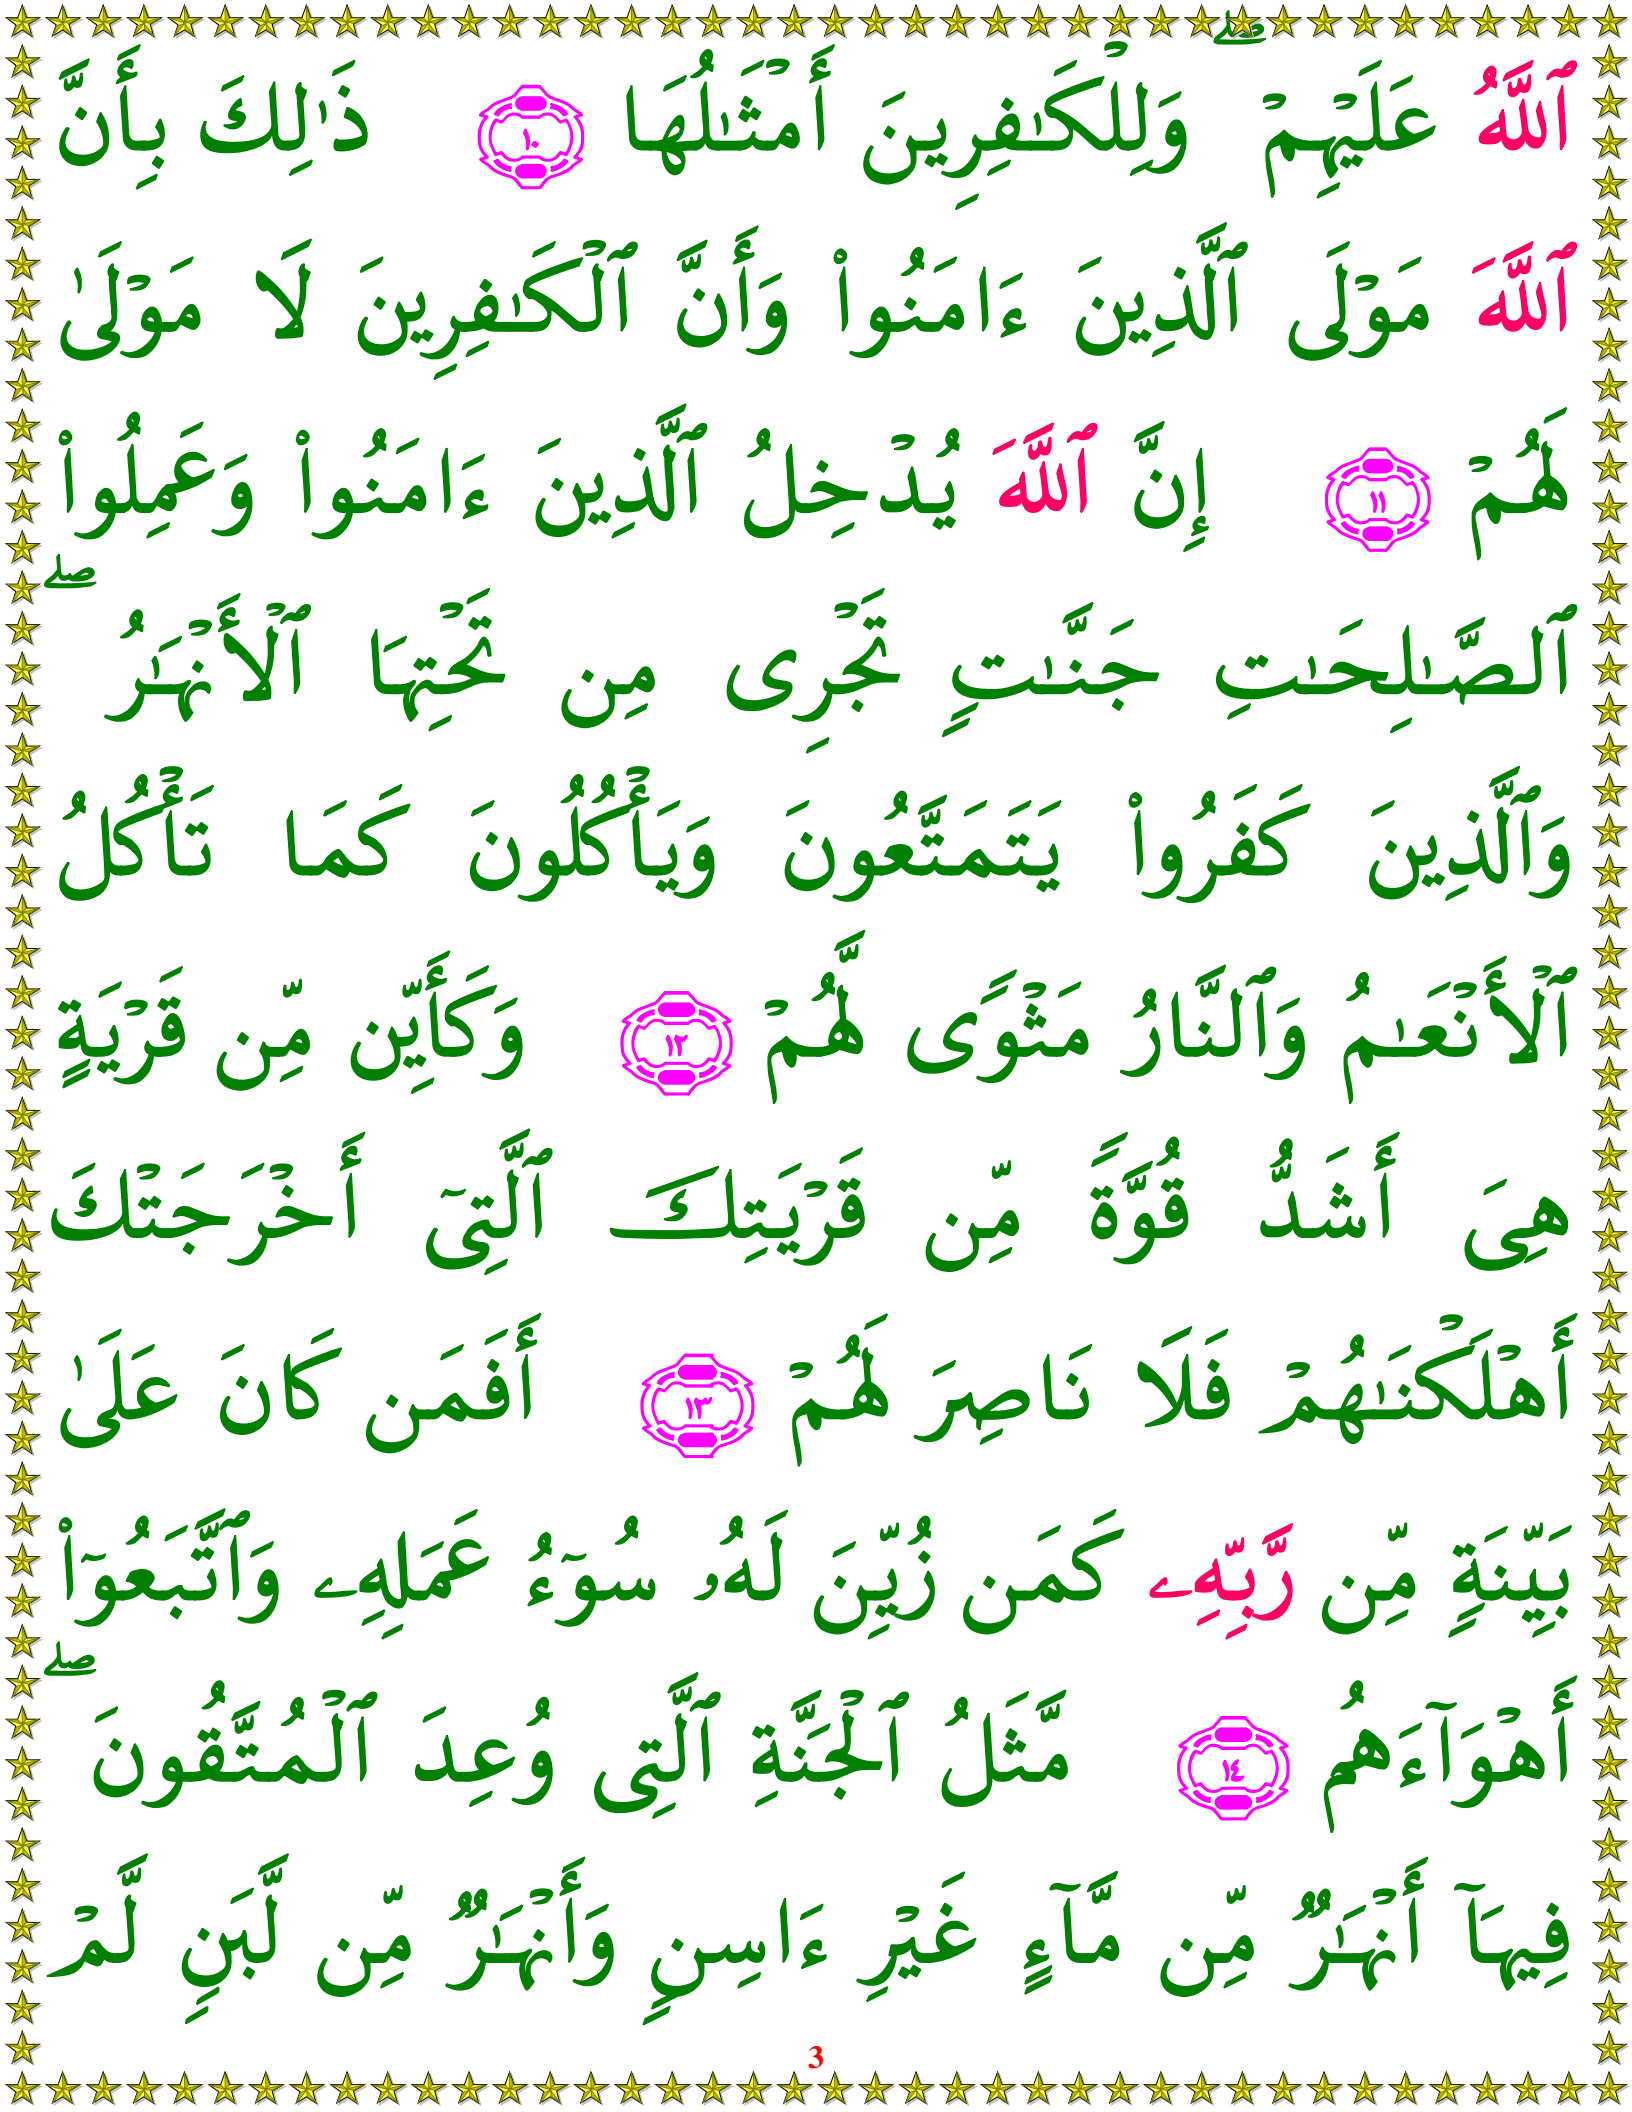 ٱللَّهُ عَلَيْهِمْ ۖ وَلِلْكَـٰفِرِينَ أَمْثَـٰلُهَا ١٠ ذَٰلِكَ بِأَنَّ
ٱللَّهَ مَوْلَى ٱلَّذِينَ ءَامَنُوا۟ وَأَنَّ ٱلْكَـٰفِرِينَ لَا مَوْلَىٰ
لَهُمْ ١١ إِنَّ ٱللَّهَ يُدْخِلُ ٱلَّذِينَ ءَامَنُوا۟ وَعَمِلُوا۟
ٱلصَّـٰلِحَـٰتِ جَنَّـٰتٍ تَجْرِى مِن تَحْتِهَا ٱلْأَنْهَـٰرُ ۖ
وَٱلَّذِينَ كَفَرُوا۟ يَتَمَتَّعُونَ وَيَأْكُلُونَ كَمَا تَأْكُلُ
ٱلْأَنْعَـٰمُ وَٱلنَّارُ مَثْوًى لَّهُمْ ١٢ وَكَأَيِّن مِّن قَرْيَةٍ
هِىَ أَشَدُّ قُوَّةً مِّن قَرْيَتِكَ ٱلَّتِىٓ أَخْرَجَتْكَ
أَهْلَكْنَـٰهُمْ فَلَا نَاصِرَ لَهُمْ ١٣ أَفَمَن كَانَ عَلَىٰ
بَيِّنَةٍ مِّن رَّبِّهِۦ كَمَن زُيِّنَ لَهُۥ سُوٓءُ عَمَلِهِۦ وَٱتَّبَعُوٓا۟
أَهْوَآءَهُم ١٤ مَّثَلُ ٱلْجَنَّةِ ٱلَّتِى وُعِدَ ٱلْمُتَّقُونَ ۖ
فِيهَآ أَنْهَـٰرٌ مِّن مَّآءٍ غَيْرِ ءَاسِنٍ وَأَنْهَـٰرٌ مِّن لَّبَنٍ لَّمْ
3